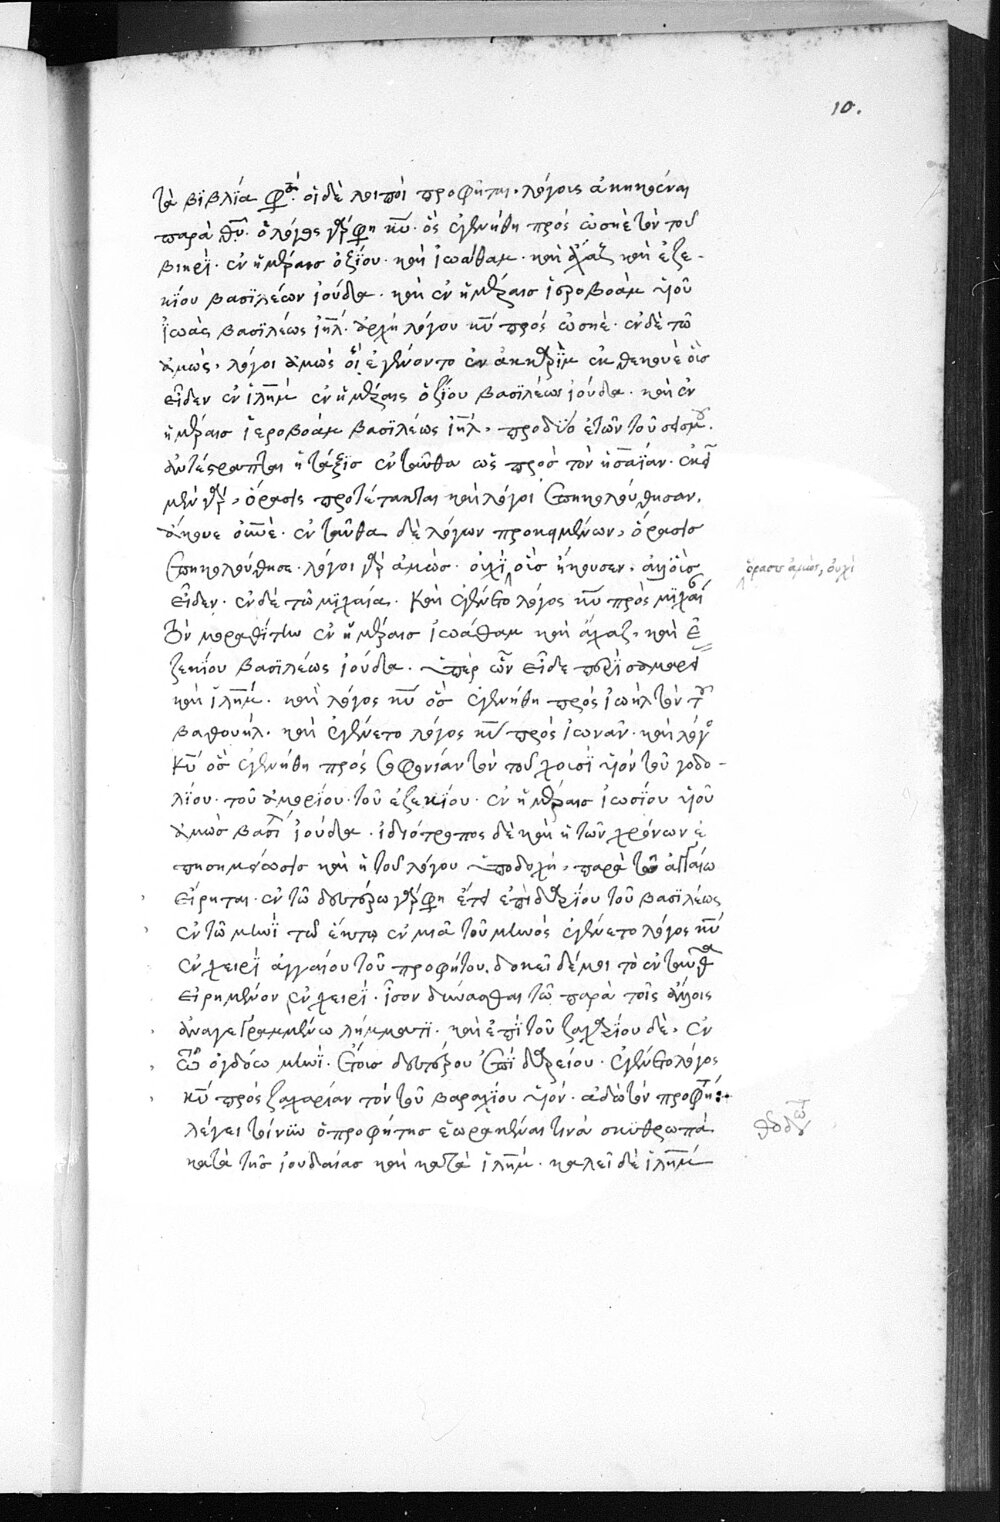 10.
τὰ βϊβλία φησί. οἱ δὲ λοιποὶ προφῆται, λόγοις ἀκηκοέναι
παρὰ θυ. ὁ λόγος γάρ φη κυ. ὃς ἐγενήθη πρὸς ὡσηὲ τὸν τοῦ
βιηρὶ. ἐν ἡμέραισ ὀζίου. καὶ ἰωάθαμ. καὶ ἄχαζ καὶ ἐζε-
κίου βασϊλέων ἰούδα. καὶ ἐν ἡμέραισ ἱεροβοὰμ υἱοῦ
ἰωὰς βασϊλέως ιηλ. ἀρχὴ λόγου κυ πρὸς ὡσηέ. ἐν δὲ τῶ
ἀμὼς, λόγοι ἀμὼς οἳ ἐγένοντο ἐν ἀκκαρὶμ ἐκ θεκουὲ οὓσ
εἶδεν ἐν ιλημ ἐν ἡμέραις ὀζίου βασϊλέως ἰούδα. καὶ ἐν
ἡμέραισ ἱεροβοὰμ βασϊλέως ιηλ, προ δύο ἐτῶν τοῦ σεισμοῦ.
ἀντέστραπται ἡ τάξισ ἐνταῦθα ὡς πρὸσ τὸν ἡσαΐαν. ἐκεῖ
μὲν γάρ, ὅρασις προτέτακται καὶ λόγοι ἐπηκολούθησαν,
ἄκουε εἰπὲ. ἐνταῦθα δὲ λόγων προκειμένων, ὅρασισ
ἐπηκολούθησε. λόγοι γάρ ἀμὼσ. οὐχὶ οὓσ ἤκουσεν. ἀλλ' οὓσ
ὅρασισ ἀμώς, οὐχὶ
εἶδεν. ἐν δὲ τῶ μϊχαία. καὶ ἐγένετο λόγος κυ πρὸς μϊχαί
τὸν μοραθίτην ἐν ἡμέραισ ἰωάθαμ καὶ ἄχαζ, καὶ ἐ
ζεκίου βασϊλέως ἰούδα. ὑπὲρ ὧν εἶδε περὶ σαμαρεί
καὶ ιλημ. καὶ λόγος κυ ὃσ ἐγενήθη πρὸς ἰωὴλ τὸν τοῦ
βαθουὴλ. καὶ ἐγένετο λόγος κυ πρὸς ἰωνᾶν. καὶ λόγο
κυ ὃσ ἐγενήθη πρὸς σοφονίαν τὸν τοῦ χουσὶ υἱὸν τοῦ γοδο-
λίου. τοῦ ἀμορίου. τοῦ ἐζεκίου. ἐν ἡμέραισ ἰωσίου υἱοῦ
ἀμὼσ βασι ἰούδα. ἰδιότροπος δὲ καὶ ἡ τῶν χρόνων ἐ
πισημείωσισ καὶ ἡ τοῦ λόγου ὑποδοχὴ, παρὰ τῶ ἀγγαίω
εἴρηται. ἐν τῶ δευτέρω γάρ φη ἔτει ἐπὶ δαρείου τοῦ βασϊλέως
ἐν τῶ μηνὶ τῶ ἕκτω ἐν μιᾶ τοῦ μηνὸς ἐγένετο λόγος κυ
ἐν χειρὶ ἀγγαίου τοῦ προφήτου. δοκεῖ δέ μοι τὸ ἐνταῦθα
εἰρημένον ἐν χειρὶ. ἴσον δύνασθαι τῶ παρὰ τοῖς ἄλλοις
ἀναγεγραμμένω λήμματϊ. καὶ ἐπὶ τοῦ ζαχαρίου δὲ, ἐν
τῶ ὀγδόω μηνὶ. ἔτοισ δευτέρου ἐπὶ δαρείου. ἐγένετο λόγος
κυ πρὸς ζαχαρίαν τὸν τοῦ βαραχίου υἱόν. ἀδὼ τὸν προφήτη:+
λέγει τοίνυν ὁ προφήτησ ἑωρακέναι τινὰ σκυθρωπὰ
κατὰ τῆς ἰουδαίασ καὶ κατὰ ιλημ. καλεῖ δὲ ιλημ